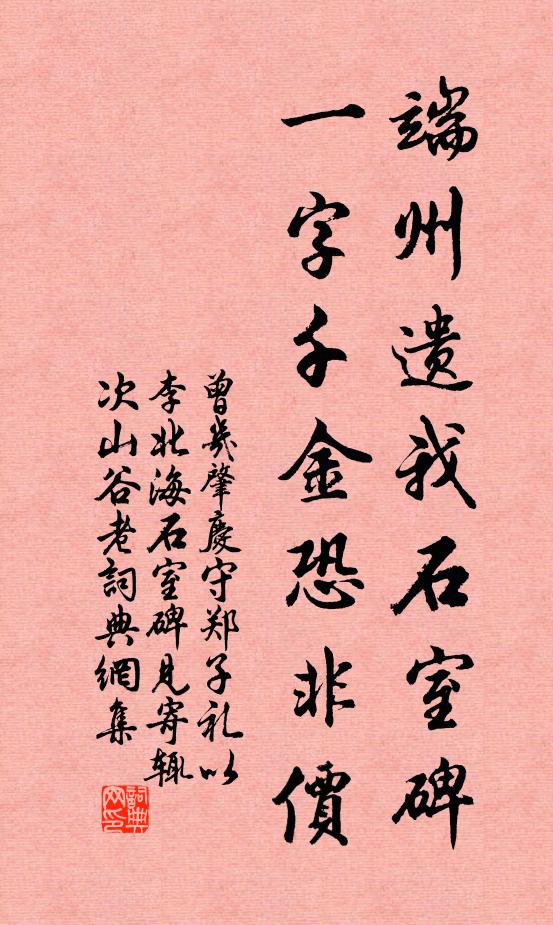 端州遺我石室碑
一字千金恐非價
曾幾肇慶守郑子礼以
李北海石室碑見寄辄
次山谷老詞典網集
詞典网印